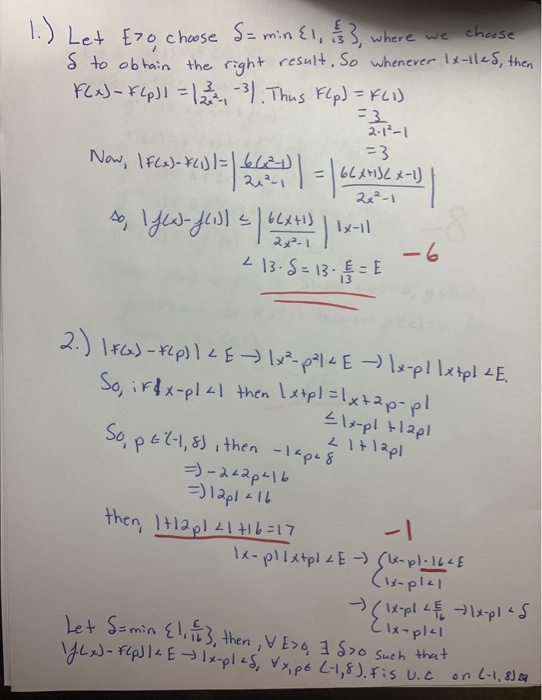 1.) Let ε>0, choose δ = min {1, ε/13}, where we choose
δ to obtain the right result. So whenever |x-1|<δ, then
F(x)-F(p)| = |3/2x²-1 -3|. Thus F(p) = F(1)
= 3/2·1²-1
= 3
Now, |F(x)-F(1)| = |6(x²-1)/2x²-1| = |6(x+1)(x-1)/2x²-1|
so, |f(x)-f(1)| ≤ |6(x+1)/2x²-1| |x-1|
-6
< 13·δ = 13·ε/13 = ε
2.) |F(x)-F(p)| < ε → |x²-p²| < ε → |x-p| |x+p| < ε.
So, if |x-p| < 1 then |x+p| = |x+2p-p|
≤ |x-p| + |2p|
< 1+|2p|
So, p ∈ (-1, 8), then -1<p<8
⇒ -2<2p<16
⇒ |2p| < 16
then, 1+|2p| < 1+16 = 17
-1
|x-p||x+p| < ε → { |x-p|·16 < ε
|x-p| < 1
→ { |x-p| < ε/16 → |x-p| < δ
|x-p| < 1
Let δ = min {1, ε/16}, then, ∀ ε>0, ∃ δ>0 such that
|f(x)-F(p)| < ε → |x-p| < δ, ∀x,p ∈ (-1,8). F is U.C on (-1,8)